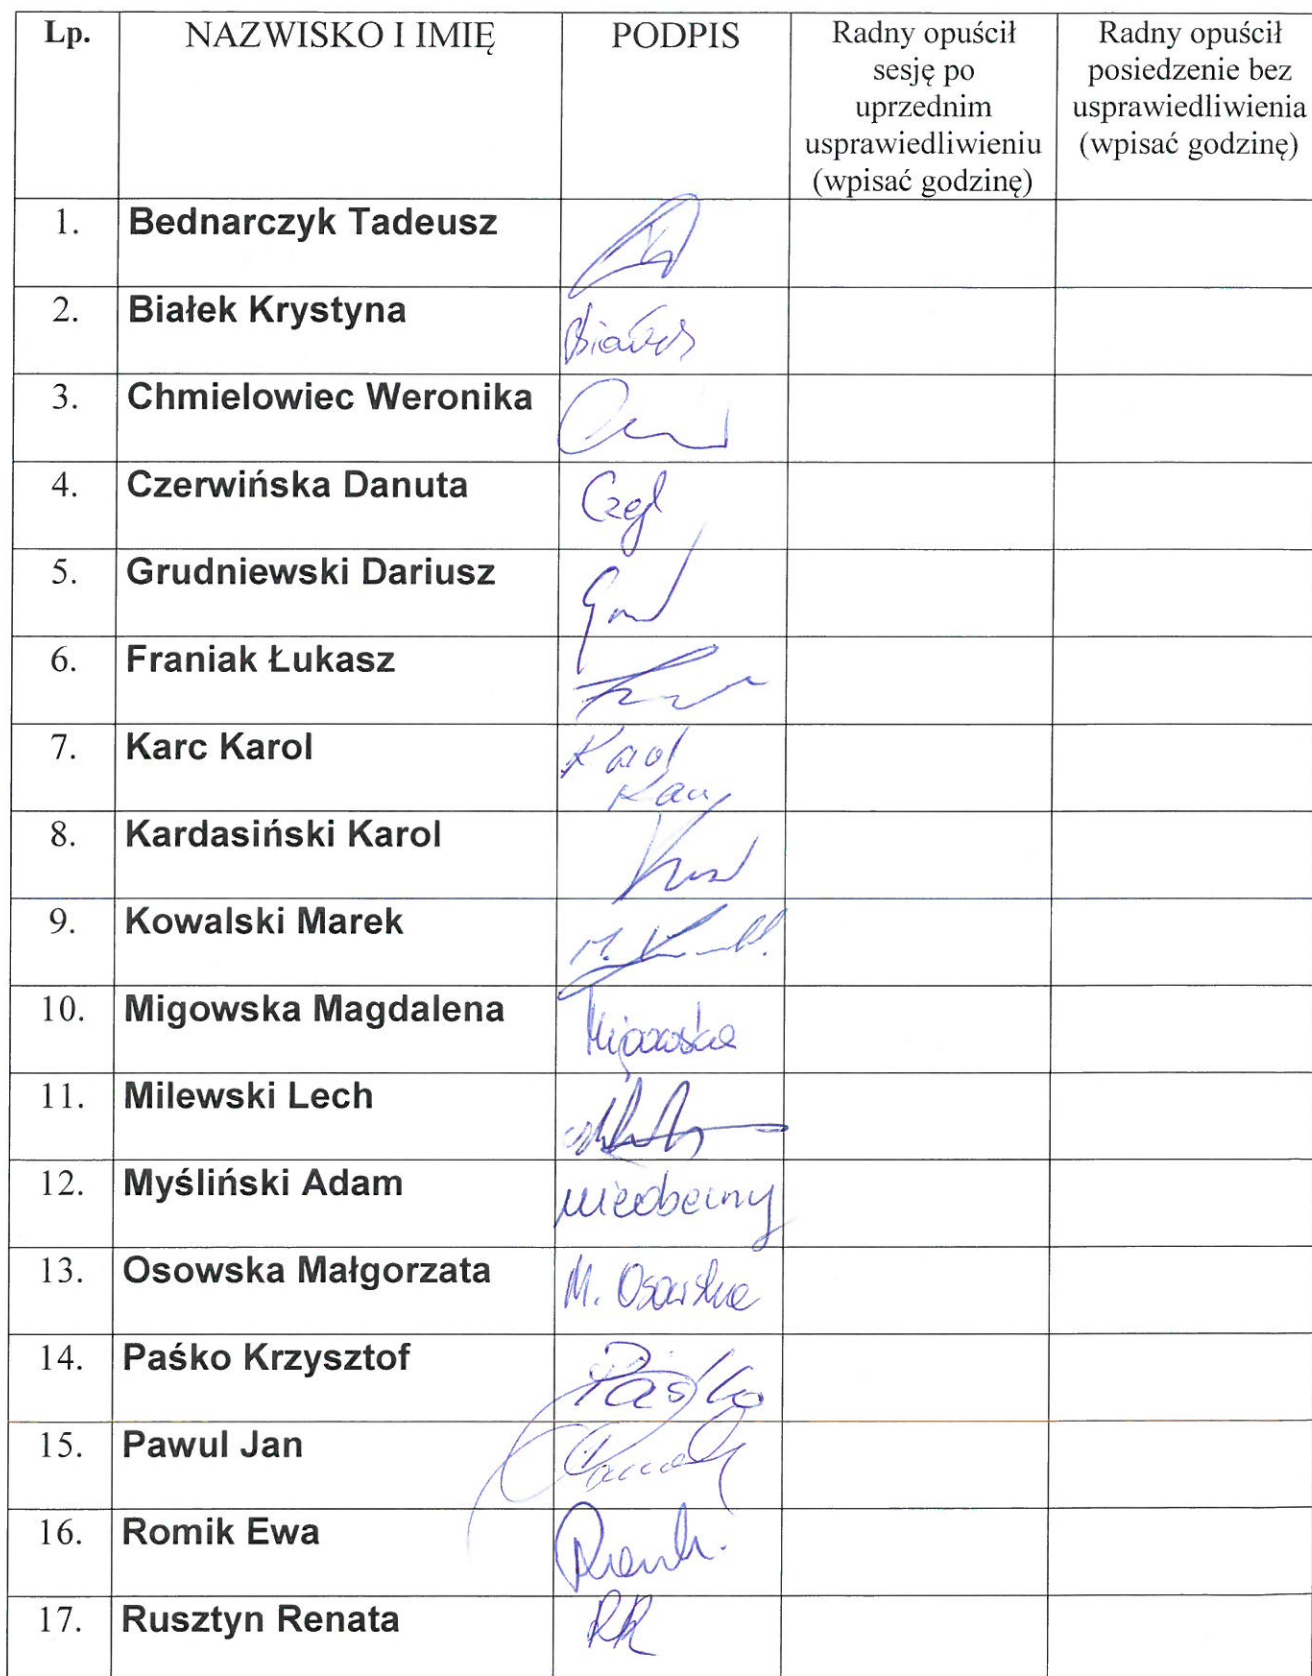 Lp. NAZWISKO I IMIĘ PODPIS Radny opuścił Radny opuścił
sesję po posiedzenie bez
uprzednim usprawiedliwienia
usprawiedliwieniu (wpisać godzinę)
(wpisać godzinę)
1. Bednarczyk Tadeusz
2. Białek Krystyna
Białek
3. Chmielowiec Weronika
4. Czerwińska Danuta
5. Grudniewski Dariusz
6. Franiak Łukasz
7. Karc Karol
Karol
Karc
8. Kardasiński Karol
9. Kowalski Marek
10. Migowska Magdalena
Migowska
11. Milewski Lech
12. Myśliński Adam
nieobecny
13. Osowska Małgorzata
M. Osowska
14. Paśko Krzysztof
Paśko
15. Pawul Jan
16. Romik Ewa
17. Rusztyn Renata
RR